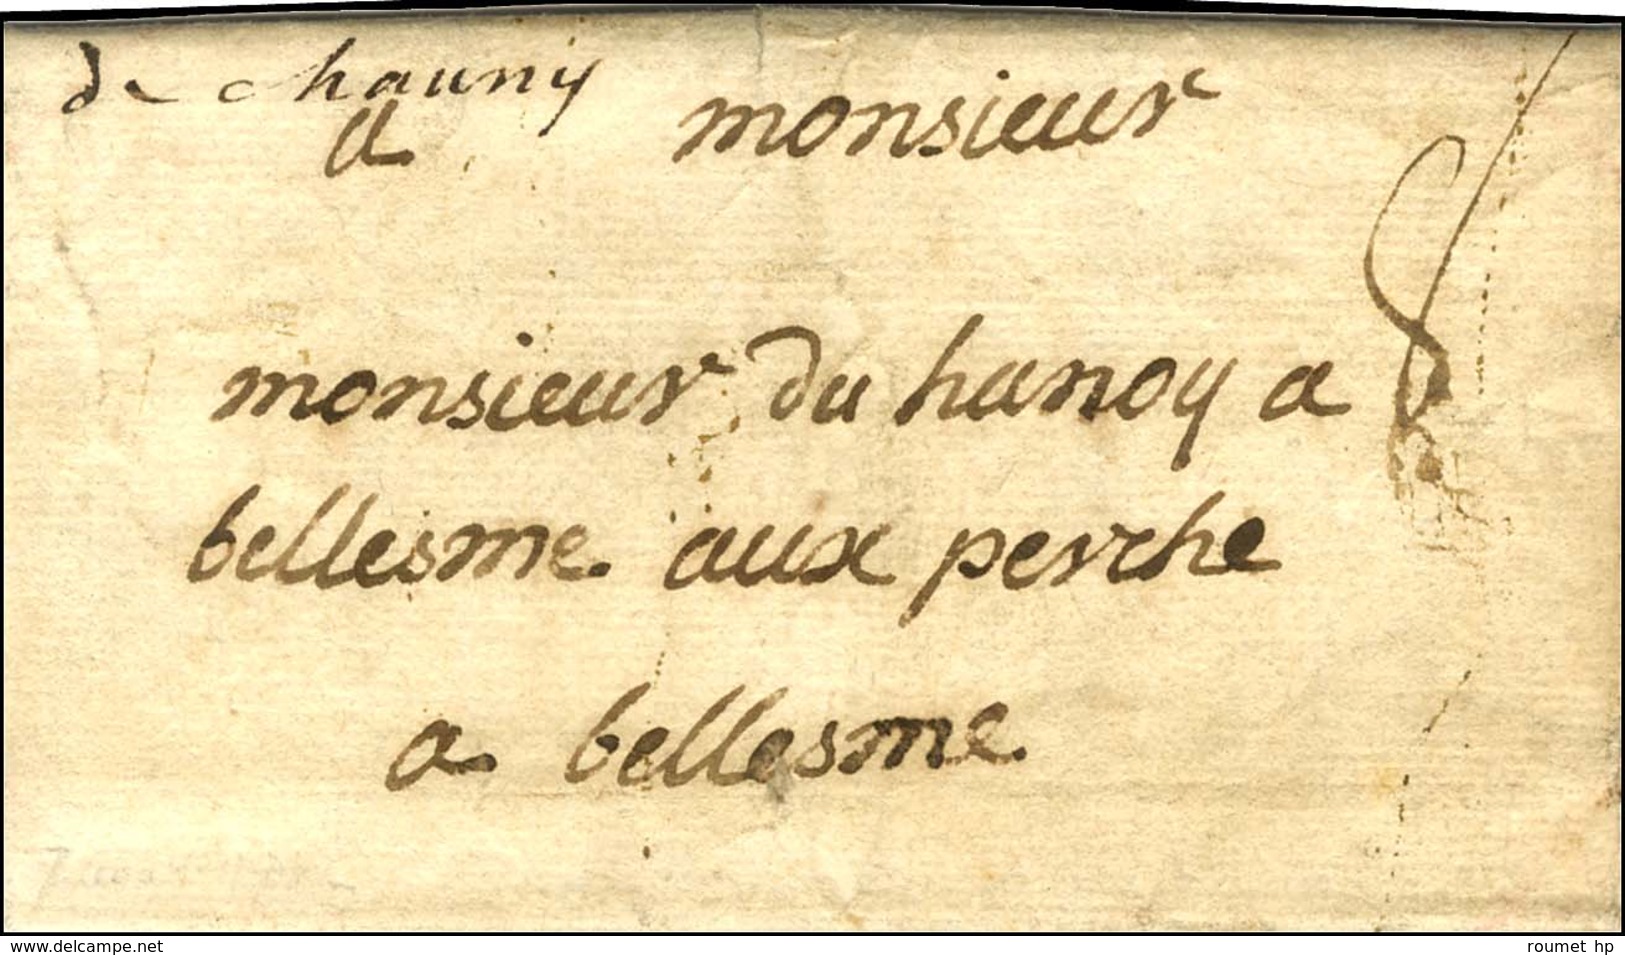 de chauny
a monsieur
monsieur du hanoy a
bellesme aux perche
a bellesme
8
www.delcampe.net
roumet hp